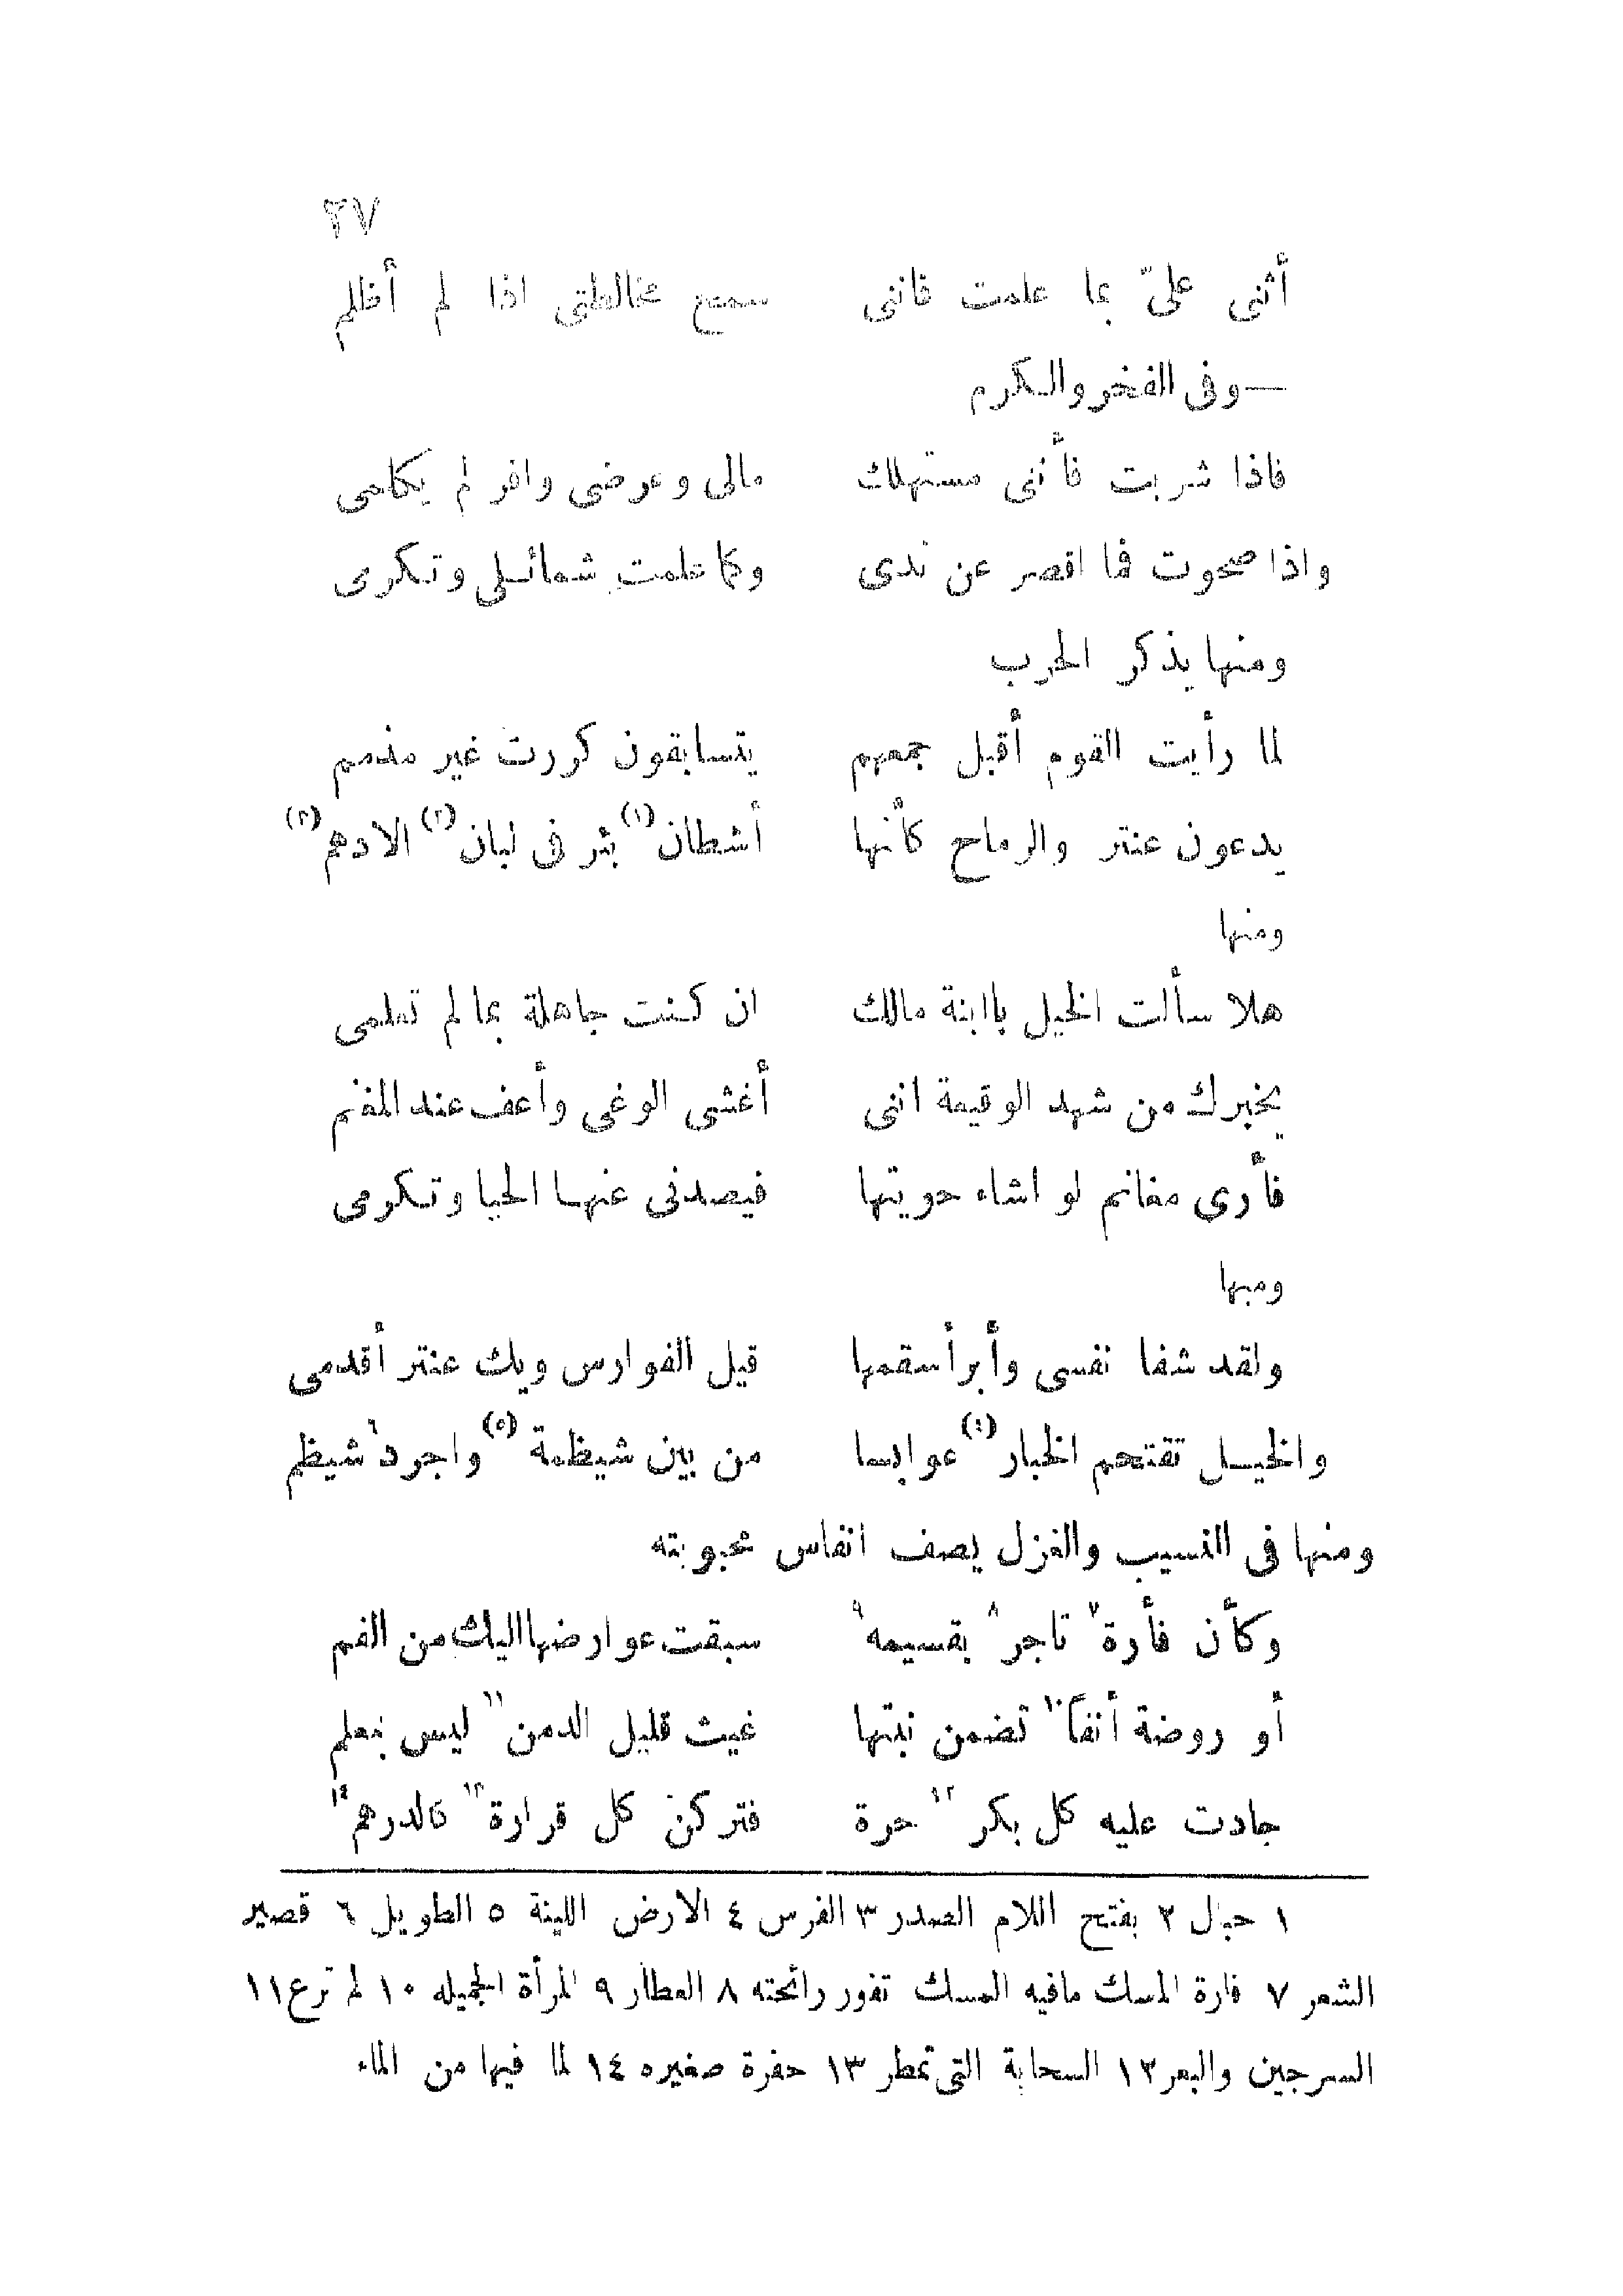 ٢٧
أثنى علىّ بما علمت فاننى سمح مخالطتى اذا لم أظلم
—وفى الفخر والكرم
فاذا شربت فأننى مستهلك مالى وعرضى وافر لم يكلمى
واذا صحوت فما اقصر عن ندى وكما علمت شمائلى وتكرمى
ومنها يذكر الحرب
لما رأيت القوم أقبل جمعهم يتسابقون كررت غير مذمم
يدعون عنتر والرماح كأنها أشطان (١) بئر فى لبان (٢) الادهم (٣)
ومنها
هلا سألت الخيل ياابنة مالك ان كنت جاهلة بما لم تعلمى
يخبرك من شهد الوقيعة اننى أغشى الوغى وأعف عند المغنم
فأرى مغانم لو اشاء حويتها فيصدنى عنها الحيا وتكرمى
ومنها
ولقد شفا نفسى وأبرأ سقمها قيل الفوارس ويك عنتر أقدمى
والخيل تقتحم الخبار (٤) عوابسا من بين شيظمة (٥) واجرد ٦ شيظم
ومنها فى النسيب والغزل يصف انفاس محبوبته
وكأن فأرة ٧ تاجر ٨ بقسيمه ٩ سبقت عوارضها اليك من الفم
أو روضة أنفاً ١٠ تضمن نبتها غيث قليل الدمن ١١ ليس بمعلم
جادت عليه كل بكر ١٢ حرة فتركن كل قرارة ١٣ كالدرهم ١٤
١ حبال ٢ بفتح اللام الصدر ٣ الفرس ٤ الارض اللينة ٥ الطويل ٦ قصير
الشعر ٧ فارة المسك مافيه المسك تفور رائحته ٨ العطار ٩ المرأة الجميله ١٠ لم ترع ١١
السرجين والبعر ١٢ السحابة التى تمطر ١٣ حفرة صغيره ١٤ لما فيها من الماء